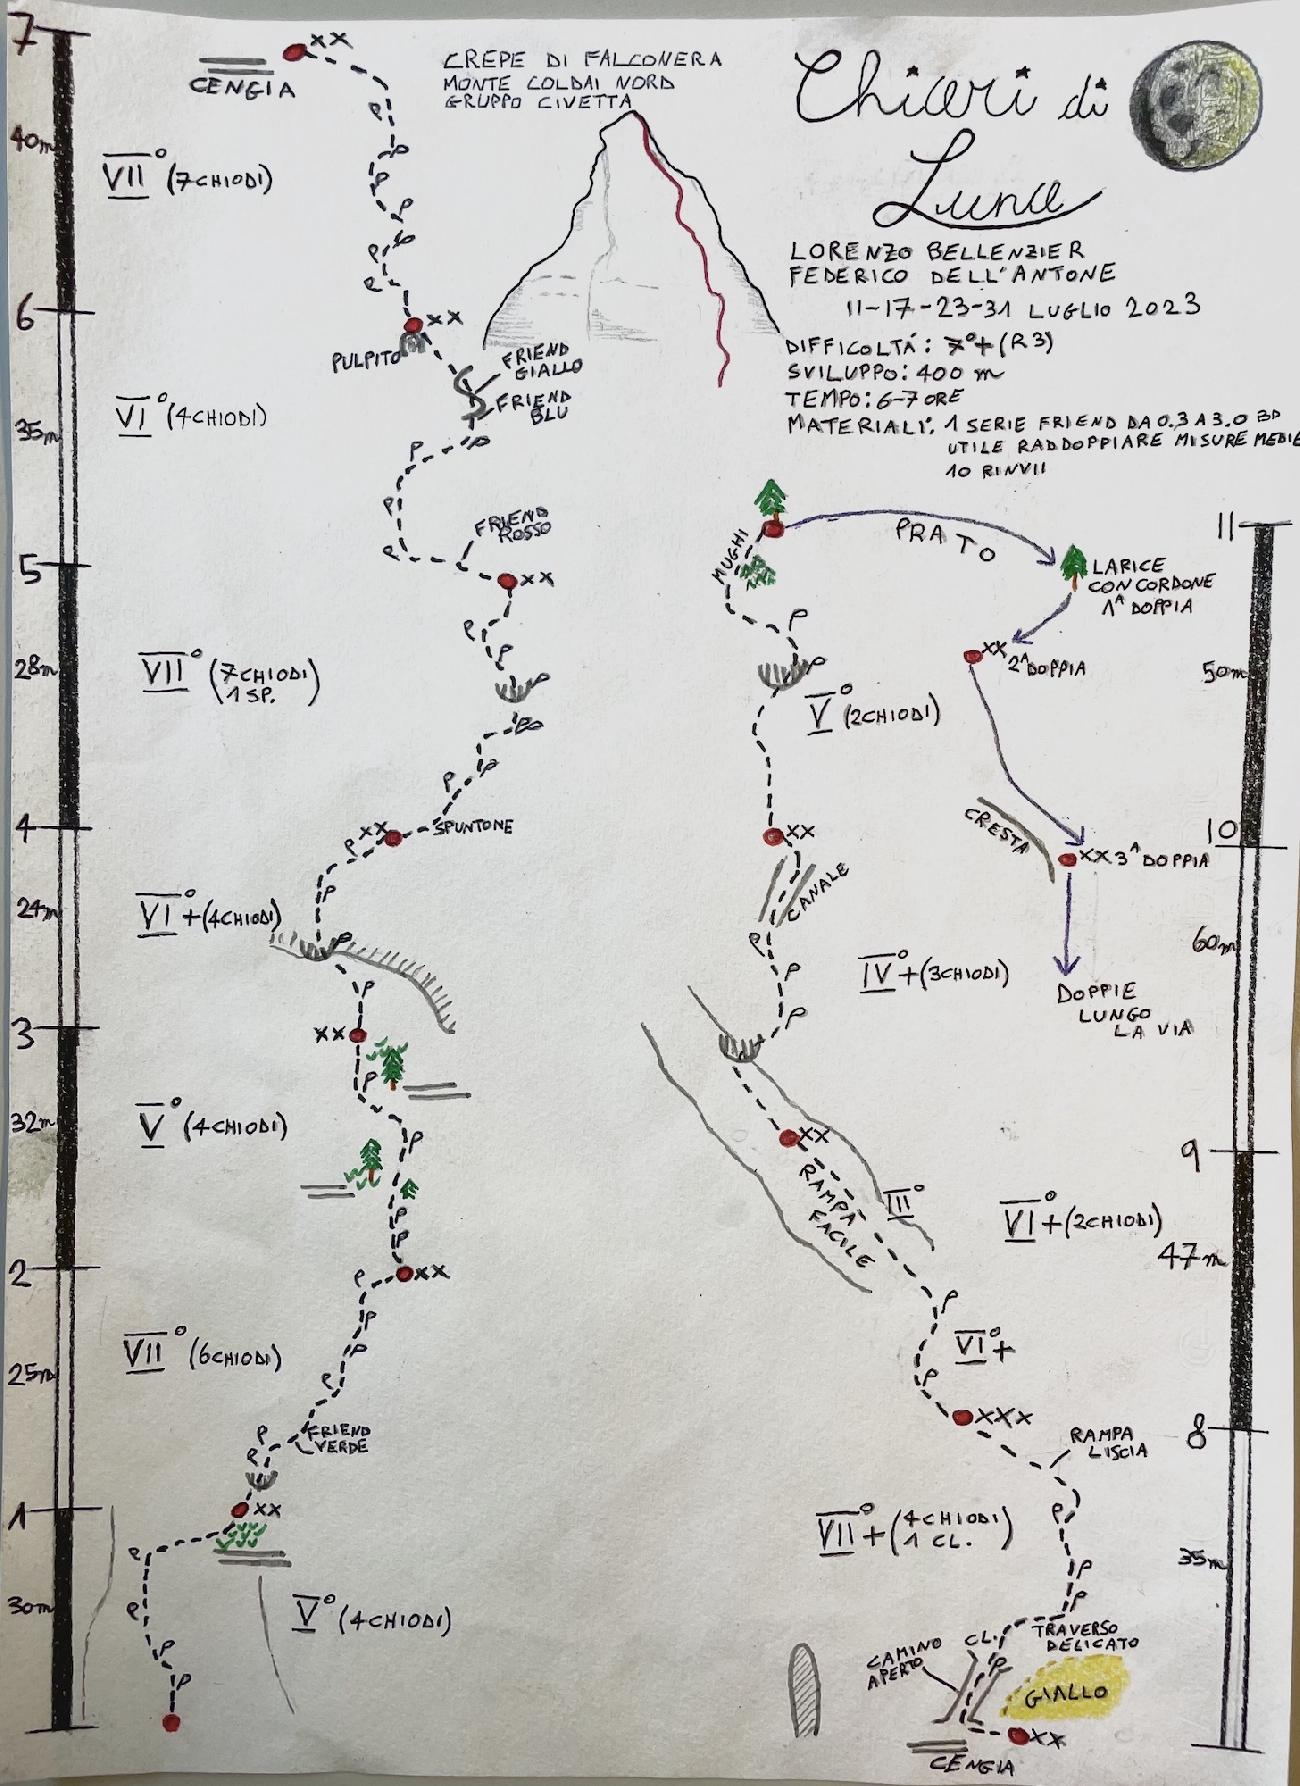 CREPE DI FALCONERA
MONTE COLDAI NORD
GRUPPO CIVETTA
Chiari di
Luna
LORENZO BELLENZIER
FEDERICO DELL'ANTONE
11-17-23-31 LUGLIO 2023
DIFFICOLTÁ: 7°+ (R3)
SVILUPPO: 400 m
TEMPO: 6-7 ORE
MATERIALI: 1 SERIE FRIEND DA 0.3 A 3.0 BD
UTILE RADDOPPIARE MISURE MEDIE
10 RINVII
7
XX
CENGIA
40m
VII° (7 CHIODI)
6
XX
PULPITO
FRIEND
GIALLO
FRIEND
BLU
VI° (4 CHIODI)
35m
FRIEND
ROSSO
5
XX
28m
VII° (7 CHIODI)
1 SP.
4
XX
SPUNTONE
24m
VI°+ (4 CHIODI)
3
XX
32m
V° (4 CHIODI)
2
XX
VII° (6 CHIODI)
25m
FRIEND
VERDE
1
XX
30m
V° (4 CHIODI)
11
MUGHI
PRATO
LARICE
CON CORDONE
1ª DOPPIA
XX 2ª DOPPIA
50m
V° (2 CHIODI)
10
XX
CRESTA
XX 3ª DOPPIA
CANALE
60m
IV°+ (3 CHIODI)
DOPPIE
LUNGO
LA VIA
9
XX
RAMPA
FACILE
III°
VI°+ (2 CHIODI)
47m
VI°+
XXX
8
RAMPA
LISCIA
VII°+ (4 CHIODI)
1 CL.
35m
TRAVERSO
DELICATO
CL.
CAMINO
APERTO
GIALLO
XX
CENGIA